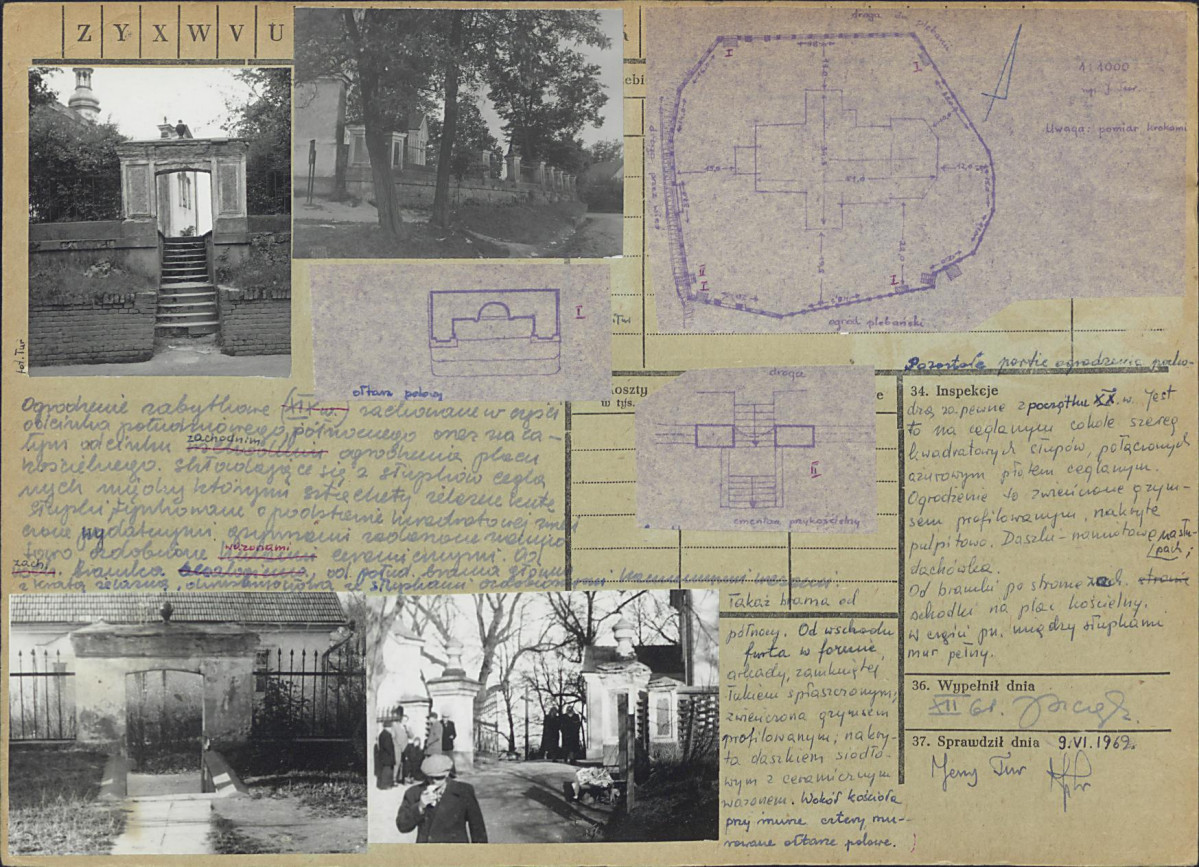 Z Y X W V U
fot. Tur
droga do plebanii
1:1000
Uwaga: pomiar krokami
ogród plebański
I
I
I
II
I
ołtarz polowy
I
droga
II
cmentarz przykościelny
Ogrodzenie zabytkowe (XIX w.) zachowane w części
odcinka południowego, północnego oraz na ca-
łym odcinku zachodnim ogrodzenia placu
kościelnego. składające się z słupków cegla
nych między którymi sztachety żelazne kute
słupki tynkowane o podstawie kwadratowej zwień
czone wydatnymi gzymsami
ozdobione wazonami ceramicznymi. Od
zach. bramka, od połud. brama główna
z kratą żelazną, słupkami ozdobion
Takaż brama od
północy. Od wschodu
furta w formie
arkady, zamkniętej
łukiem spłaszczonym,
zwieńczona gzymsem
profilowanym; nakry-
ta daszkiem siodło-
wym z ceramicznym
wazonem. Wokół kościoła
przy murze cztery mu-
rowane ołtarze polowe.
koszty
w tys.
Pozostałe partie ogrodzenia pocho-
34. Inspekcje
dzą zapewne z początku XX w. Jest
to na ceglanym cokole szereg
kwadratowych słupów, połączonych
ażurowym płotem ceglanym.
Ogrodzenie to zwieńczone gzym-
sem profilowanym, nakryte
pulpitowo. Daszki namiotowe na słu-
pach;
dachówka.
Od bramki po stronie zach.
schodki na plac kościelny.
w części pn. między słupkami
mur pełny.
36. Wypełnił dnia
XII 61.
37. Sprawdził dnia 9.VI.1962.
Jerzy Tur